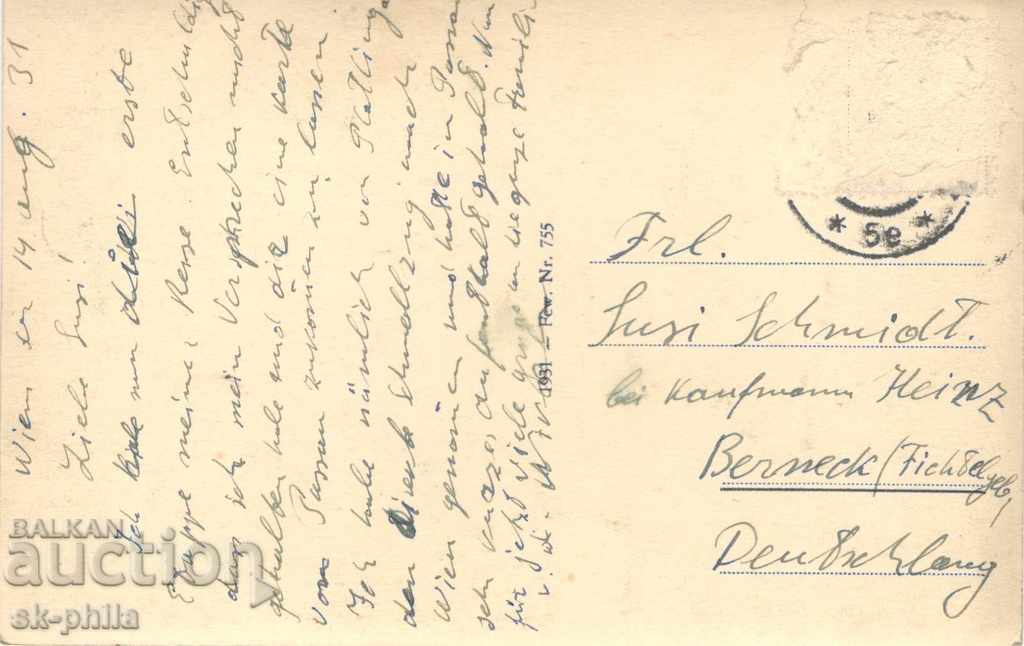 Wien am 14 aug. 31
Liebe Susi!
Ich habe nun die erste
Etappe meiner Reise. Entschuldig
dass ich mein Versprechen nicht
gehalten habe und dir eine Karte
von Passau zukommen zu lassen
Ich habe nämlich von Plattling
den direkt Schnellzug nach
Wien genommen und hatte in Passau
sehr kurzen Aufenthalt gehabt. Nun
für jetzt viele Grüße an die ganze Famili
1931 – Rew. Nr. 755
* 5e *
Frl.
Susi Schmidt.
bei Kaufmann Heinz
Berneck (Fichtelgeb)
Deutschland
BALKAN
auction
sk-phila